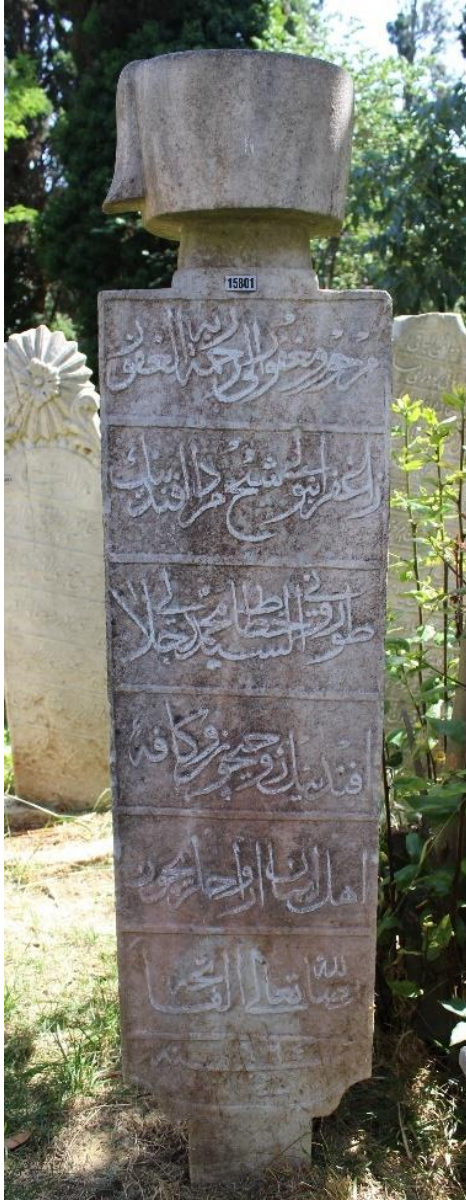 15801
مرحوم و مغفور الى رحمة ربه الغفور
زاغفرانبولى شيخ مراد افندينك
طورونى الخطاط السيد محمد
افندينك روحيچون و كافه
اهل ايمان ارواحلريچون
لله تعالى الفاتحه
سنه